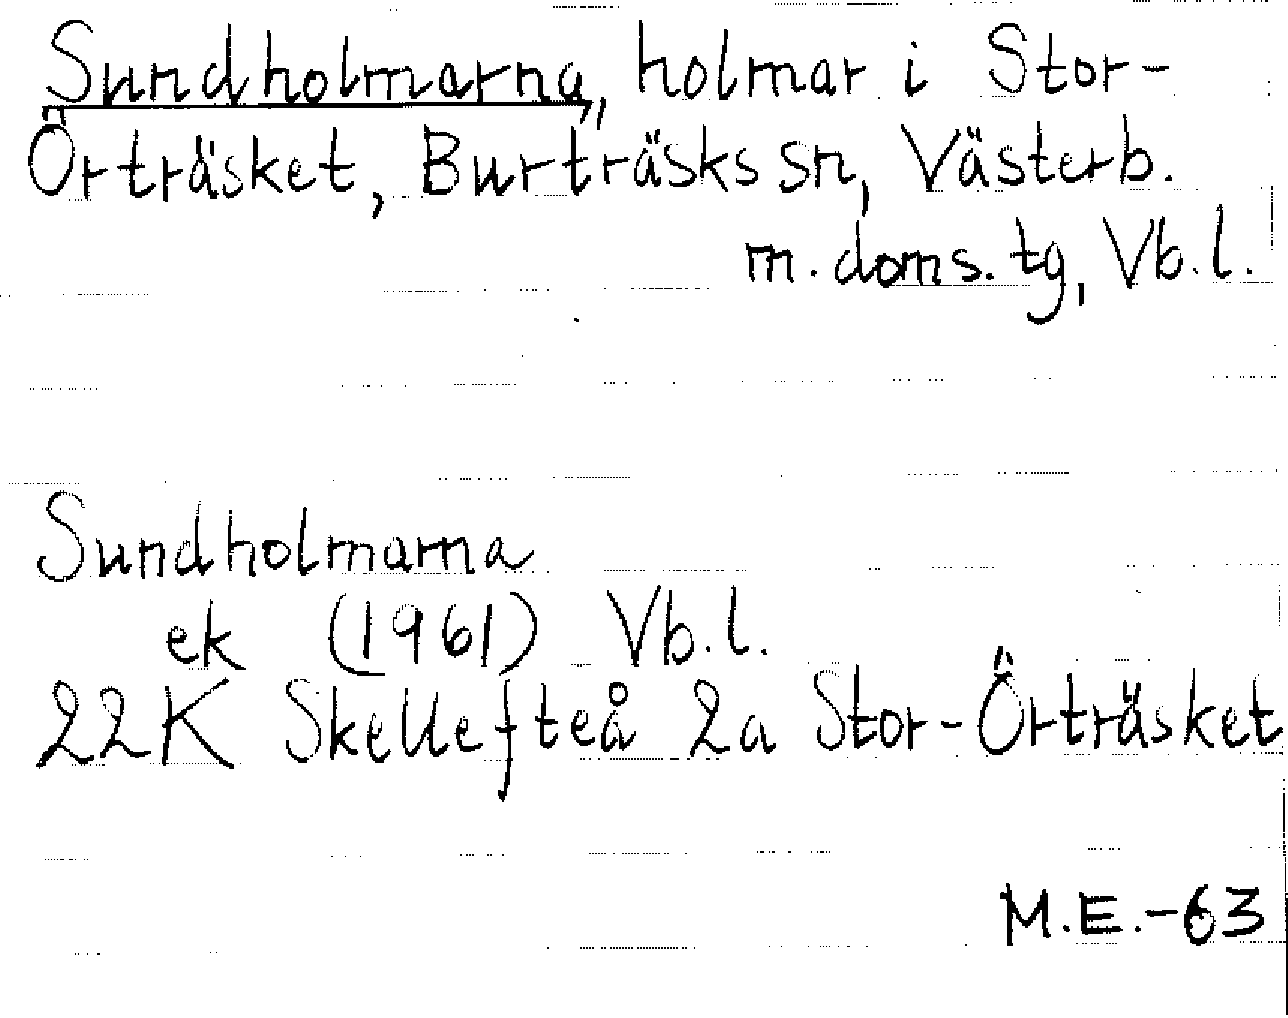 Sundholmarna, holmar i Stor-
Örträsket, Burträsks sn, Västerb.
m. doms. tg, Vb.l.
Sundholmarna
ek (1961) Vb.l.
22K Skellefteå 2a Stor-Örträsket
M.E.-63